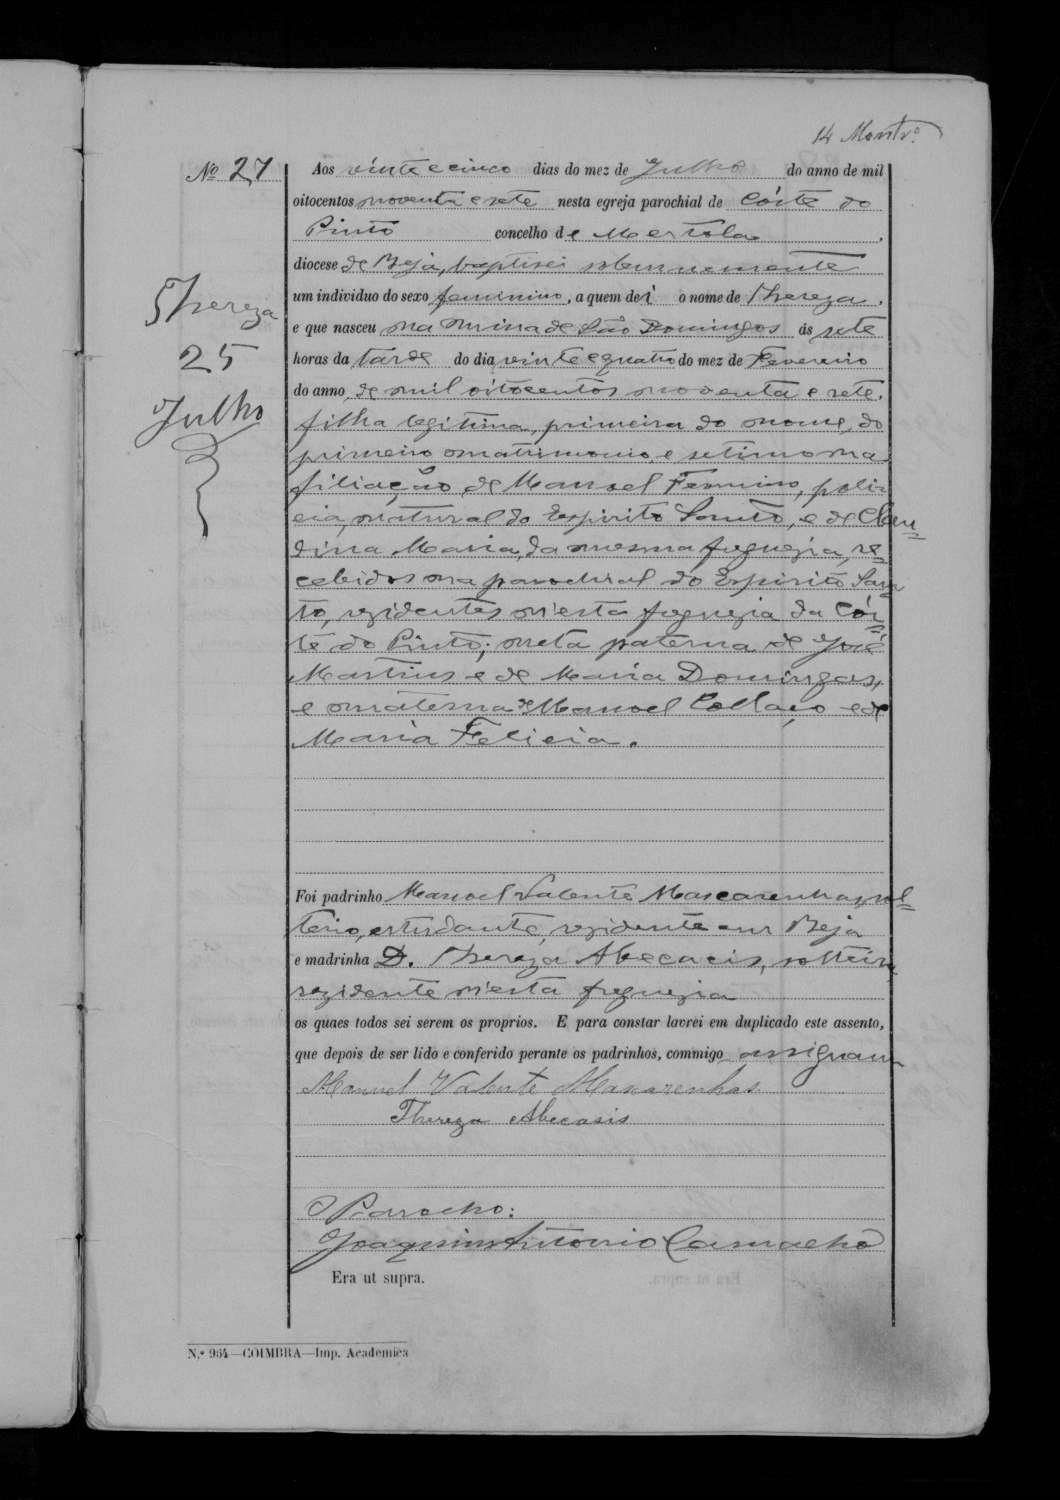 14 Montrº
Nº 27
Thereza
25
Julho
Aos vinte e cinco dias do mez de Julho do anno de mil
oitocentos noventa e sete nesta egreja parochial de Córte do
Pinto concelho de Mertola,
diocese de Beja, baptisei solemnemente
um individuo do sexo feminino, a quem dei o nome de Thereza,
e que nasceu na Mina de São Domingos ás sete
horas da tarde do dia vinte e quatro do mez de Fevereiro
do anno de mil oitocentos noventa e sete,
filha legitima, primeira do nome, do
primeiro matrimonio, e setimo na
filiação, de Manoel Fermino, poli-
cia, natural do Espirito Santo, e de Clau=
dina Maria, da mesma freguezia, re=
cebidos na parochial do Espirito San
to, rezidentes n'esta freguezia da Cór=
te do Pinto; neta paterna de José
Martins e de Maria Domingas,
e materna de Manoel Collaço e de
Maria Felicia.
Foi padrinho Manoel Valente Mascarenhas, sol=
teiro, estudante, rezidente em Beja
e madrinha D. Thereza Abecacis, solteira
rezidente n'esta freguezia
os quaes todos sei serem os proprios. E para constar lavrei em duplicado este assento,
que depois de ser lido e conferido perante os padrinhos, commigo assignam
Manuel Valente Mascarenhas
Thereza Abecasis
O Parocho:
Joaquim Antonio Camacho
Era ut supra.
N.º 954—COIMBRA—Imp. Academica